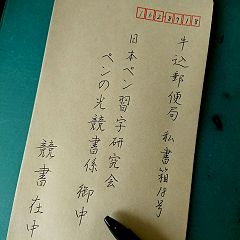 1628718
牛込郵便局 私書箱18号
日本ペン習字研究会
ペンの光競書係 御中
競書在中